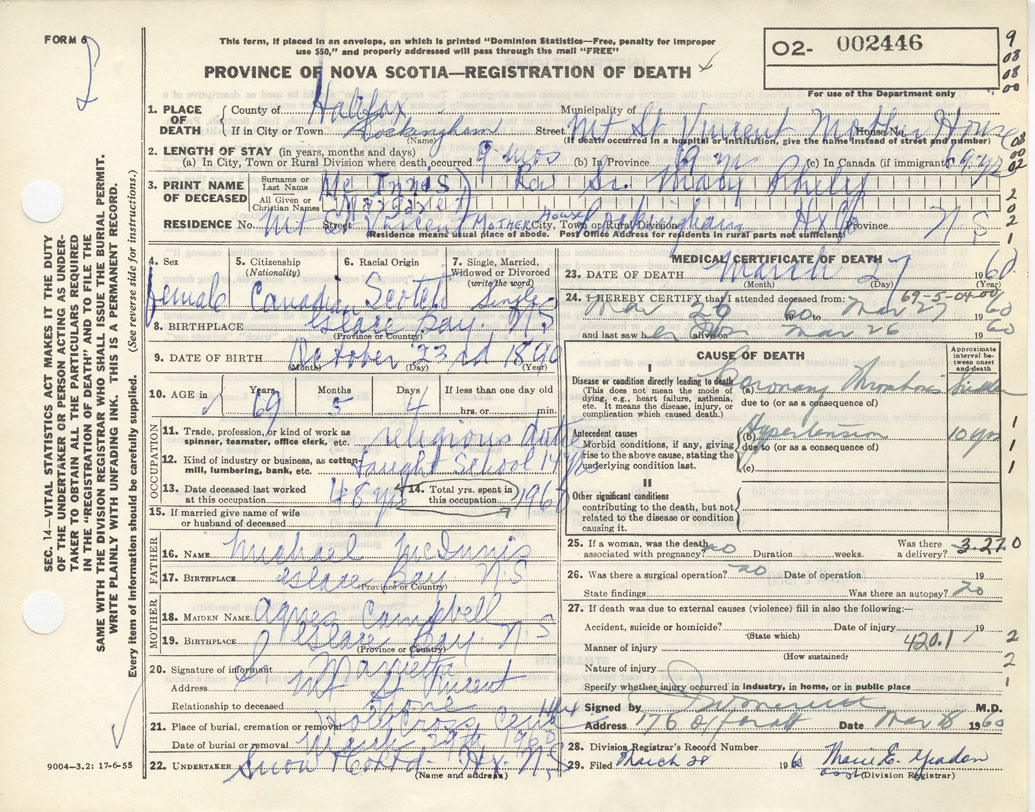 FORM 6
This form, if placed in an envelope, on which is printed "Dominion Statistics—Free, penalty for improper
use $50," and properly addressed will pass through the mail "FREE"
PROVINCE OF NOVA SCOTIA—REGISTRATION OF DEATH
O2- 002446
For use of the Department only
9
08
08
00
1. PLACE OF DEATH
County of Halifax
Municipality of
If in City or Town Rockingham Street Mt St Vincent Mother House House No.
(Name) (If death occurred in a hospital or institution, give the name instead of street and number)
2. LENGTH OF STAY (in years, months and days)
(a) In City, Town or Rural Division where death occurred 9 mos (b) In Province 69 yrs (c) In Canada (if immigrant) 69 yrs
3. PRINT NAME OF DECEASED
Surname or Last Name Mc Innis) Rev Sr. Mary
All Given or Christian Names Margaret
RESIDENCE No. Mt St Vincent Street MOTHER House City, Town or Rural Division Rockingham Hx Co Province N S
(Residence means usual place of abode. Post Office Address for residents in rural parts not sufficient)
4. Sex
female
5. Citizenship
(Nationality)
Canadian
6. Racial Origin
Scotch
7. Single, Married,
Widowed or Divorced
(write the word)
Single
8. BIRTHPLACE Glace Bay. N S
(Province or Country)
9. DATE OF BIRTH October 23rd 1890
(Month) (Day) (Year)
10. AGE in
Years 69 Months 5 Days 4 If less than one day old
hrs. or min.
OCCUPATION
11. Trade, profession, or kind of work as
spinner, teamster, office clerk, etc. religious duties
12. Kind of industry or business, as cotton-
mill, lumbering, bank, etc. taught School
13. Date deceased last worked
at this occupation 48 yrs
14. Total yrs. spent in
this occupation 1960
15. If married give name of wife
or husband of deceased
FATHER
16. NAME Michael McInnis
17. BIRTHPLACE Glace Bay N S
(Province or Country)
MOTHER
18. MAIDEN NAME Agnes Campbell
19. BIRTHPLACE Glace Bay. N S
(Province or Country)
20. Signature of informant Sr Marietta
Address Mt St Vincent
Relationship to deceased None
21. Place of burial, cremation or removal Holy Cross Cem
Date of burial or removal March 29th
22. UNDERTAKER Snow Co Ltd - Hx. N S
(Name and address)
MEDICAL CERTIFICATE OF DEATH
23. DATE OF DEATH March 27 1960
(Month) (Day) (Year)
69-5-04-00
24. I HEREBY CERTIFY that I attended deceased from:
Mar 26 1960 to Mar 27 1960
and last saw her alive on Mar 26 1960
CAUSE OF DEATH
Approximate interval between onset and death
I
Disease or condition directly leading to death
(This does not mean the mode of
dying, e.g., heart failure, asthenia,
etc. It means the disease, injury, or
complication which caused death.)
Coronary Thrombosis Sudden
due to (or as a consequence of)
Antecedent causes
Morbid conditions, if any, giving
rise to the above cause, stating the
underlying condition last.
(b) Hypertension 10 yrs
due to (or as a consequence of)
(c)
II
Other significant conditions
contributing to the death, but not
related to the disease or condition
causing it.
25. If a woman, was the death
associated with pregnancy? no Duration weeks. Was there
a delivery?
3-27.0
26. Was there a surgical operation? no Date of operation 19
State findings Was there an autopsy? no
27. If death was due to external causes (violence) fill in also the following:—
Accident, suicide or homicide? Date of injury 19
(State which)
420.1
Manner of injury
(How sustained)
Nature of injury
Specify whether injury occurred in industry, in home, or in public place
Signed by M.D.
Address 176 Date Mar 28 1960
28. Division Registrar's Record Number
29. Filed March 28 1960 Marie E.
asst (Division Registrar)
SEC. 14—VITAL STATISTICS ACT MAKES IT THE DUTY
OF THE UNDERTAKER OR PERSON ACTING AS UNDER-
TAKER TO OBTAIN ALL THE PARTICULARS REQUIRED
IN THE "REGISTRATION OF DEATH" AND TO FILE THE
SAME WITH THE DIVISION REGISTRAR WHO SHALL ISSUE THE BURIAL PERMIT.
WRITE PLAINLY WITH UNFADING INK. THIS IS A PERMANENT RECORD.
Every item of information should be carefully supplied. (See reverse side for instructions.)
9004-3.2: 17-6-55